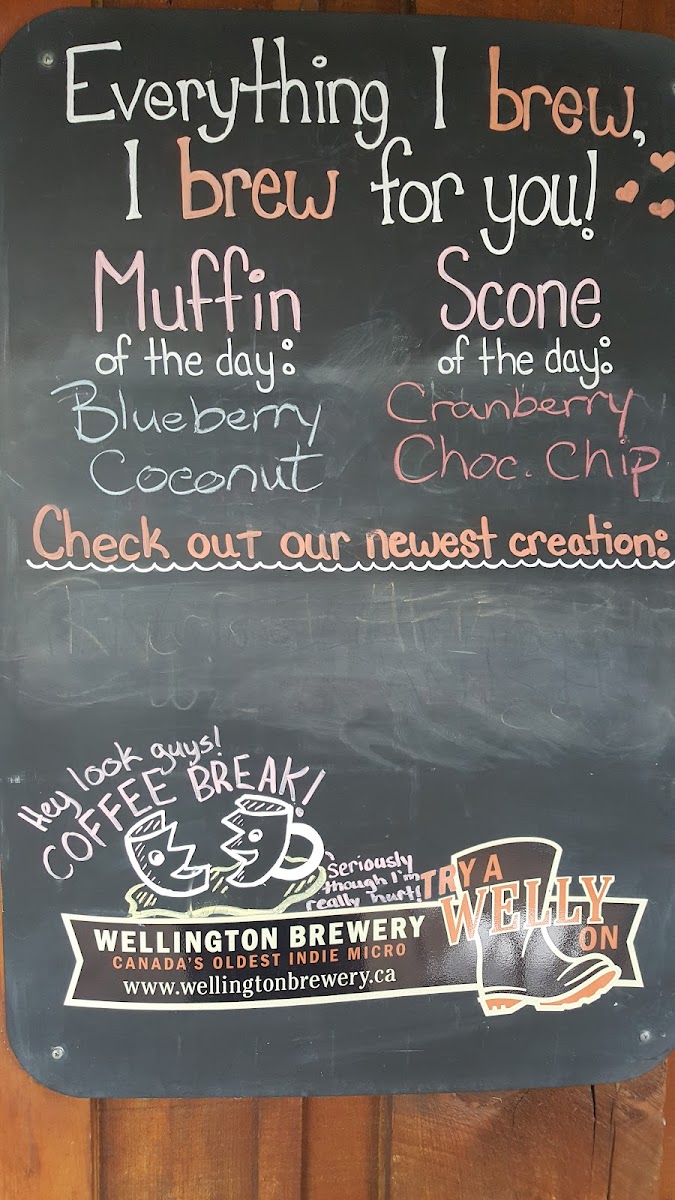 Everything I brew,
I brew for you!
Muffin
of the day:
Blueberry
Coconut
Scone
of the day:
Cranberry
Choc. Chip
Check out our newest creation:
Hey look guys!
COFFEE BREAK!
Seriously
though I'm
really hurt!
TRY A
WELLY
ON
WELLINGTON BREWERY
CANADA'S OLDEST INDIE MICRO
www.wellingtonbrewery.ca